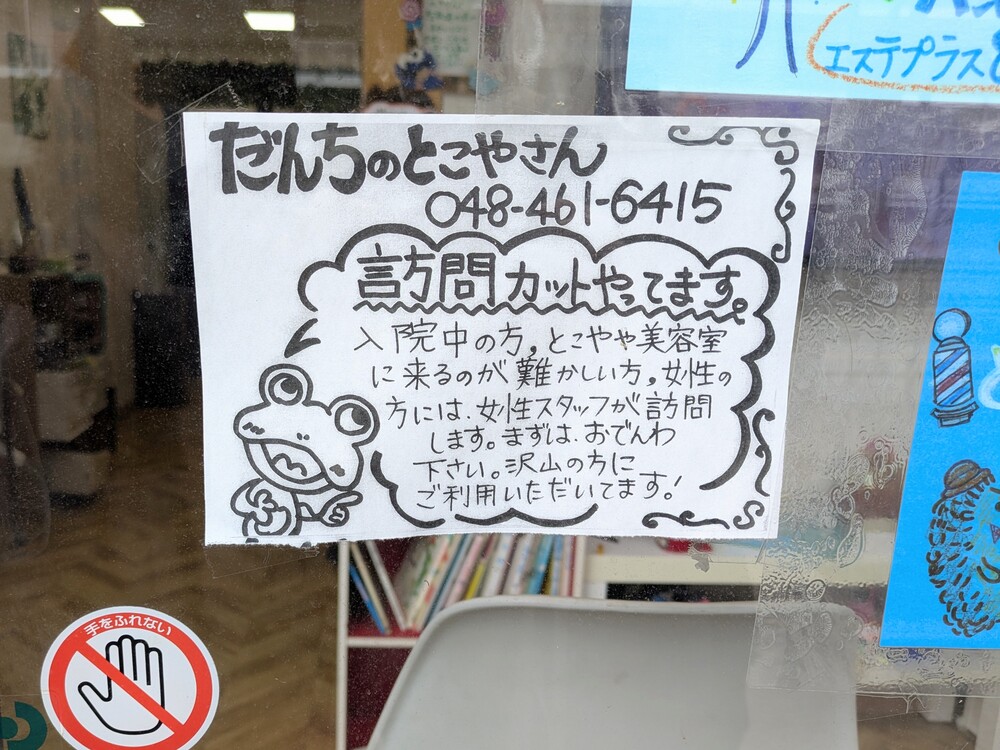 エステプラス
だんちのとこやさん
048-461-6415
訪問カットやってます。
入院中の方、とこやや美容室
に来るのが難かしい方。女性の
方には、女性スタッフが訪問
します。まずは、おでんわ
下さい。沢山の方に
ご利用いただいてます!
手をふれない